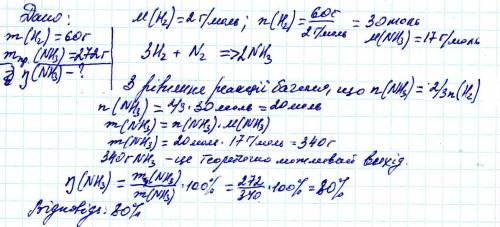 Дано:
m(H₂)=60г
mпр.(NH₃)=272г
η(NH₃)-?
M(H₂)=2г/моль; n(H₂)=60г/2г/моль=30моль
M(NH₃)=17г/моль
3H₂+N₂ ⇒2NH₃
З рівняння реакції бачимо, що n(NH₃)=2/3n(H₂)
n(NH₃)=2/3·30моль=20моль
m(NH₃)=n(NH₃)·M(NH₃)
m(NH₃)=20моль·17г/моль=340г
340г NH₃ - це теоретично можливий вихід.
η(NH₃)=mп(NH₃)/m(NH₃)·100%=272/340·100%=80%
Відповідь: 80%